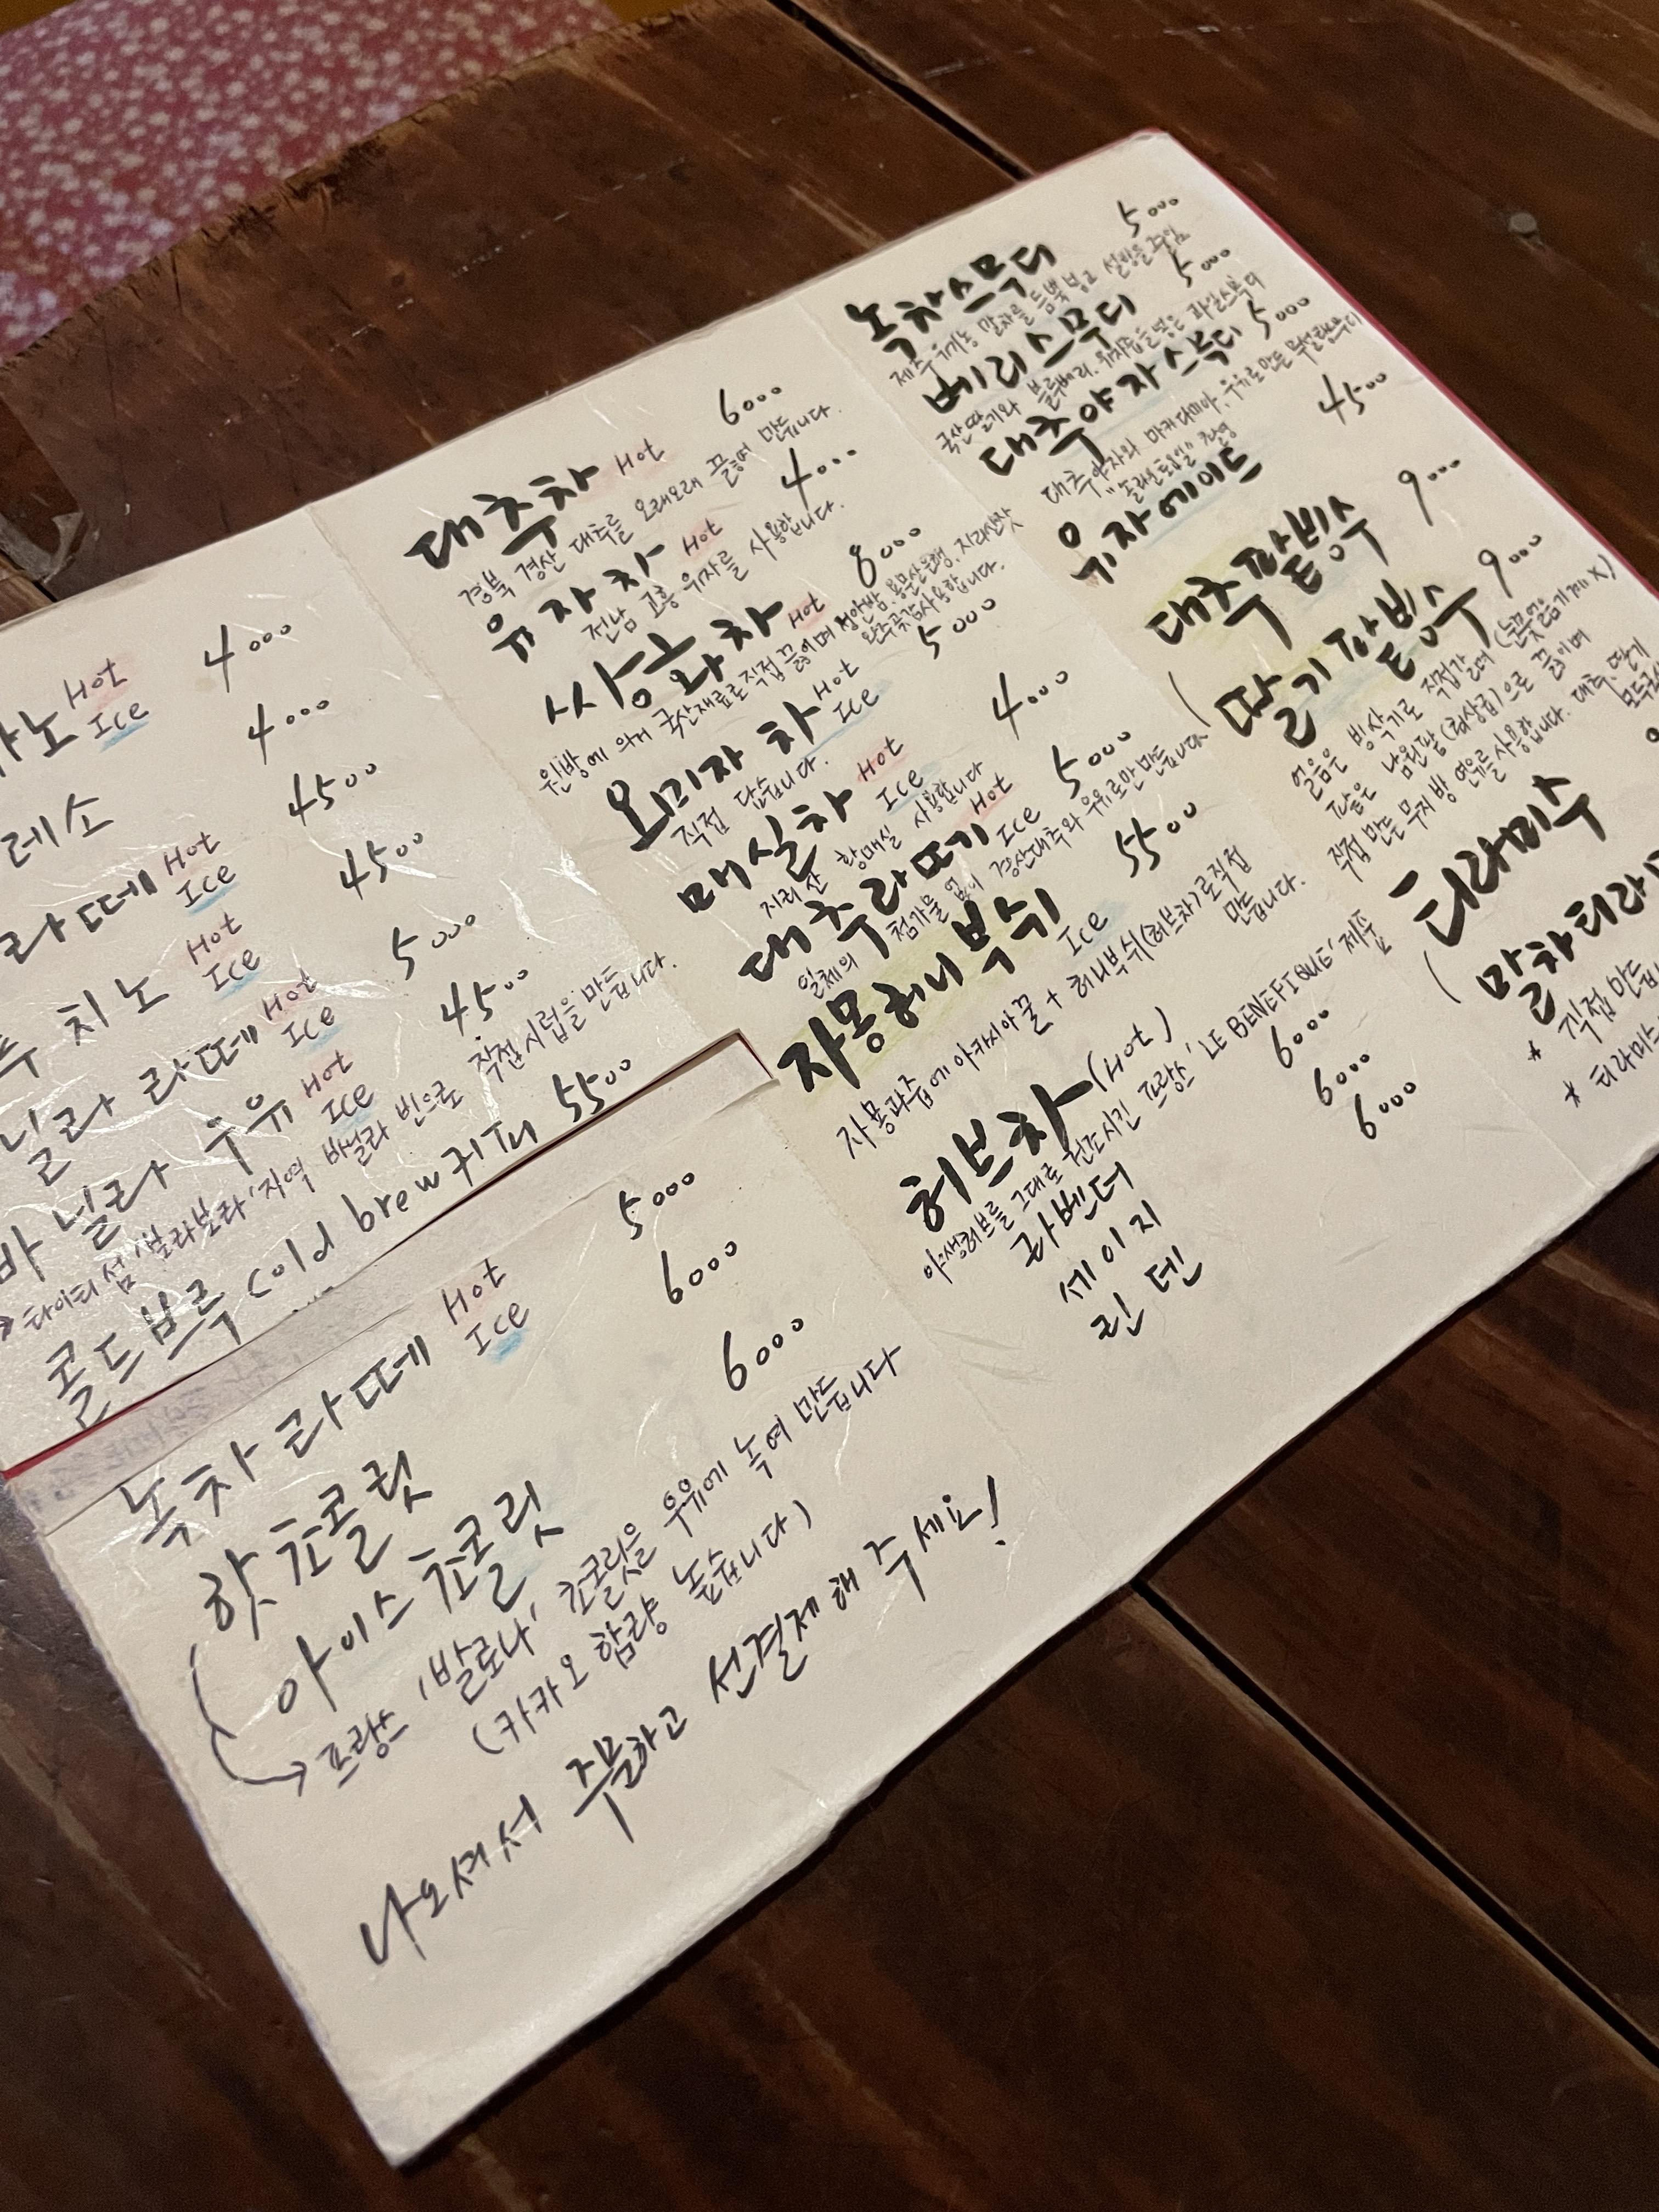 노 Hot 4000
Ice
레소 4000
라떼 Hot 4500
Ice
치노 Hot 4500
Ice
닐라 라떼 Hot 5000
Ice
바닐라 우유 Hot 4500
Ice
→ 타이티섬 '보라보라' 지역 바닐라 빈으로 직접 시럽을 만듭니다.
콜드브루 cold brew 커피 5500
녹차 라떼 Hot 5000
Ice
핫 초콜릿 6000
아이스 초콜릿 6000
→ 프랑스 '발로나' 초콜릿을 우유에 녹여 만듭니다
(카카오 함량 높습니다)
나오셔서 주문하고 선결제해 주세요!
대추차 Hot 6000
경북 경산 대추를 오래오래 끓여 만듭니다.
유자차 Hot 4000
전남 고흥 유자를 사용합니다.
쌍화차 Hot 8000
원방에 의거 국산재료로 직접 끓이며 정안밤, 용문산은행, 지리산잣
완주곶감 사용합니다.
오미자차 Hot 5000
Ice
직접 담습니다.
매실차 Hot 4000
Ice
지리산 황매실 사용합니다
대추라떼 Hot 5000
Ice
일체의 첨가물 없이 경산대추와 우유로만 만듭니다
자몽허니블쉬 Ice 5500
자몽과즙에 아카시아꿀 + 허니부쉬(허브차)로 직접
만듭니다.
허브차 (Hot)
야생허브를 그대로 건조시킨 프랑스 'LE BENEFIQUE' 제품
라벤더 6000
세이지 6000
린덴 6000
녹차스무디 5000
제주 유기농 말차를 듬뿍 넣고 설탕을
베리스무디 5000
국산딸기와 블루베리, 유자즙을 넣은 과일스무디
대추야자스무디 5000
대추야자와 마카다미아, 우유로 만든
유자에이드 4500
대추팥빙수 9000
딸기팥빙수 9000
얼음은 빙삭기로 직접갈며 (눈꽃얼음기계X)
팥은 남원팥(최상급)으로 끓이며
직접 만든 무지방 연유를 사용합니다. 대추, 딸기
티라미수
말차티라미
* 직접 만듭
* 티라미